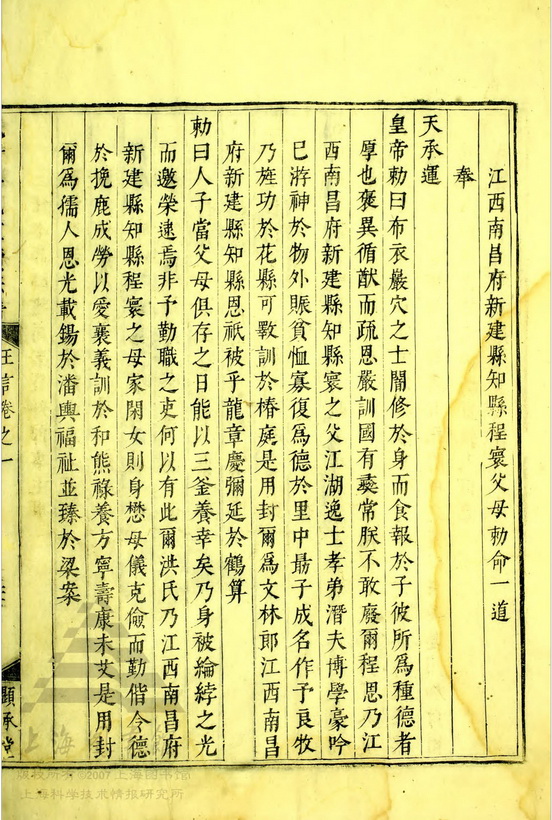 江西南昌府新建縣知縣程寰父母勅命一道
奉
天承運
皇帝勅曰布衣嚴穴之士闇修於身而食報於子彼所為種德者
厚也褒異循猷而疏恩嚴訓國有彝常朕不敢廢爾程思乃江
西南昌府新建縣知縣寰之父江湖逸士孝弟潛夫博學豪吟
巳游神於物外賑貧恤寡復為德於里中朂子成名作予良牧
乃旌功於花縣可斁訓於椿庭是用封爾為文林郎江西南昌
府新建縣知縣恩祇被乎龍章慶彌延於鶴算
勅曰人子當父母俱存之日能以三釜養幸矣乃身被綸綍之光
而邀榮逮焉非予勤職之吏何以有此爾洪氏乃江西南昌府
新建縣知縣程寰之母家閑女則身懋母儀克儉而勤偕令德
於挽鹿成勞以愛襄義訓於和熊祿養方寧壽康未艾是用封
爾為孺人恩光載錫於潘輿福祉並臻於梁案
卷之一
顯承堂
上海
版权所有 ©2007 上海图书馆
上海科学技术情报研究所